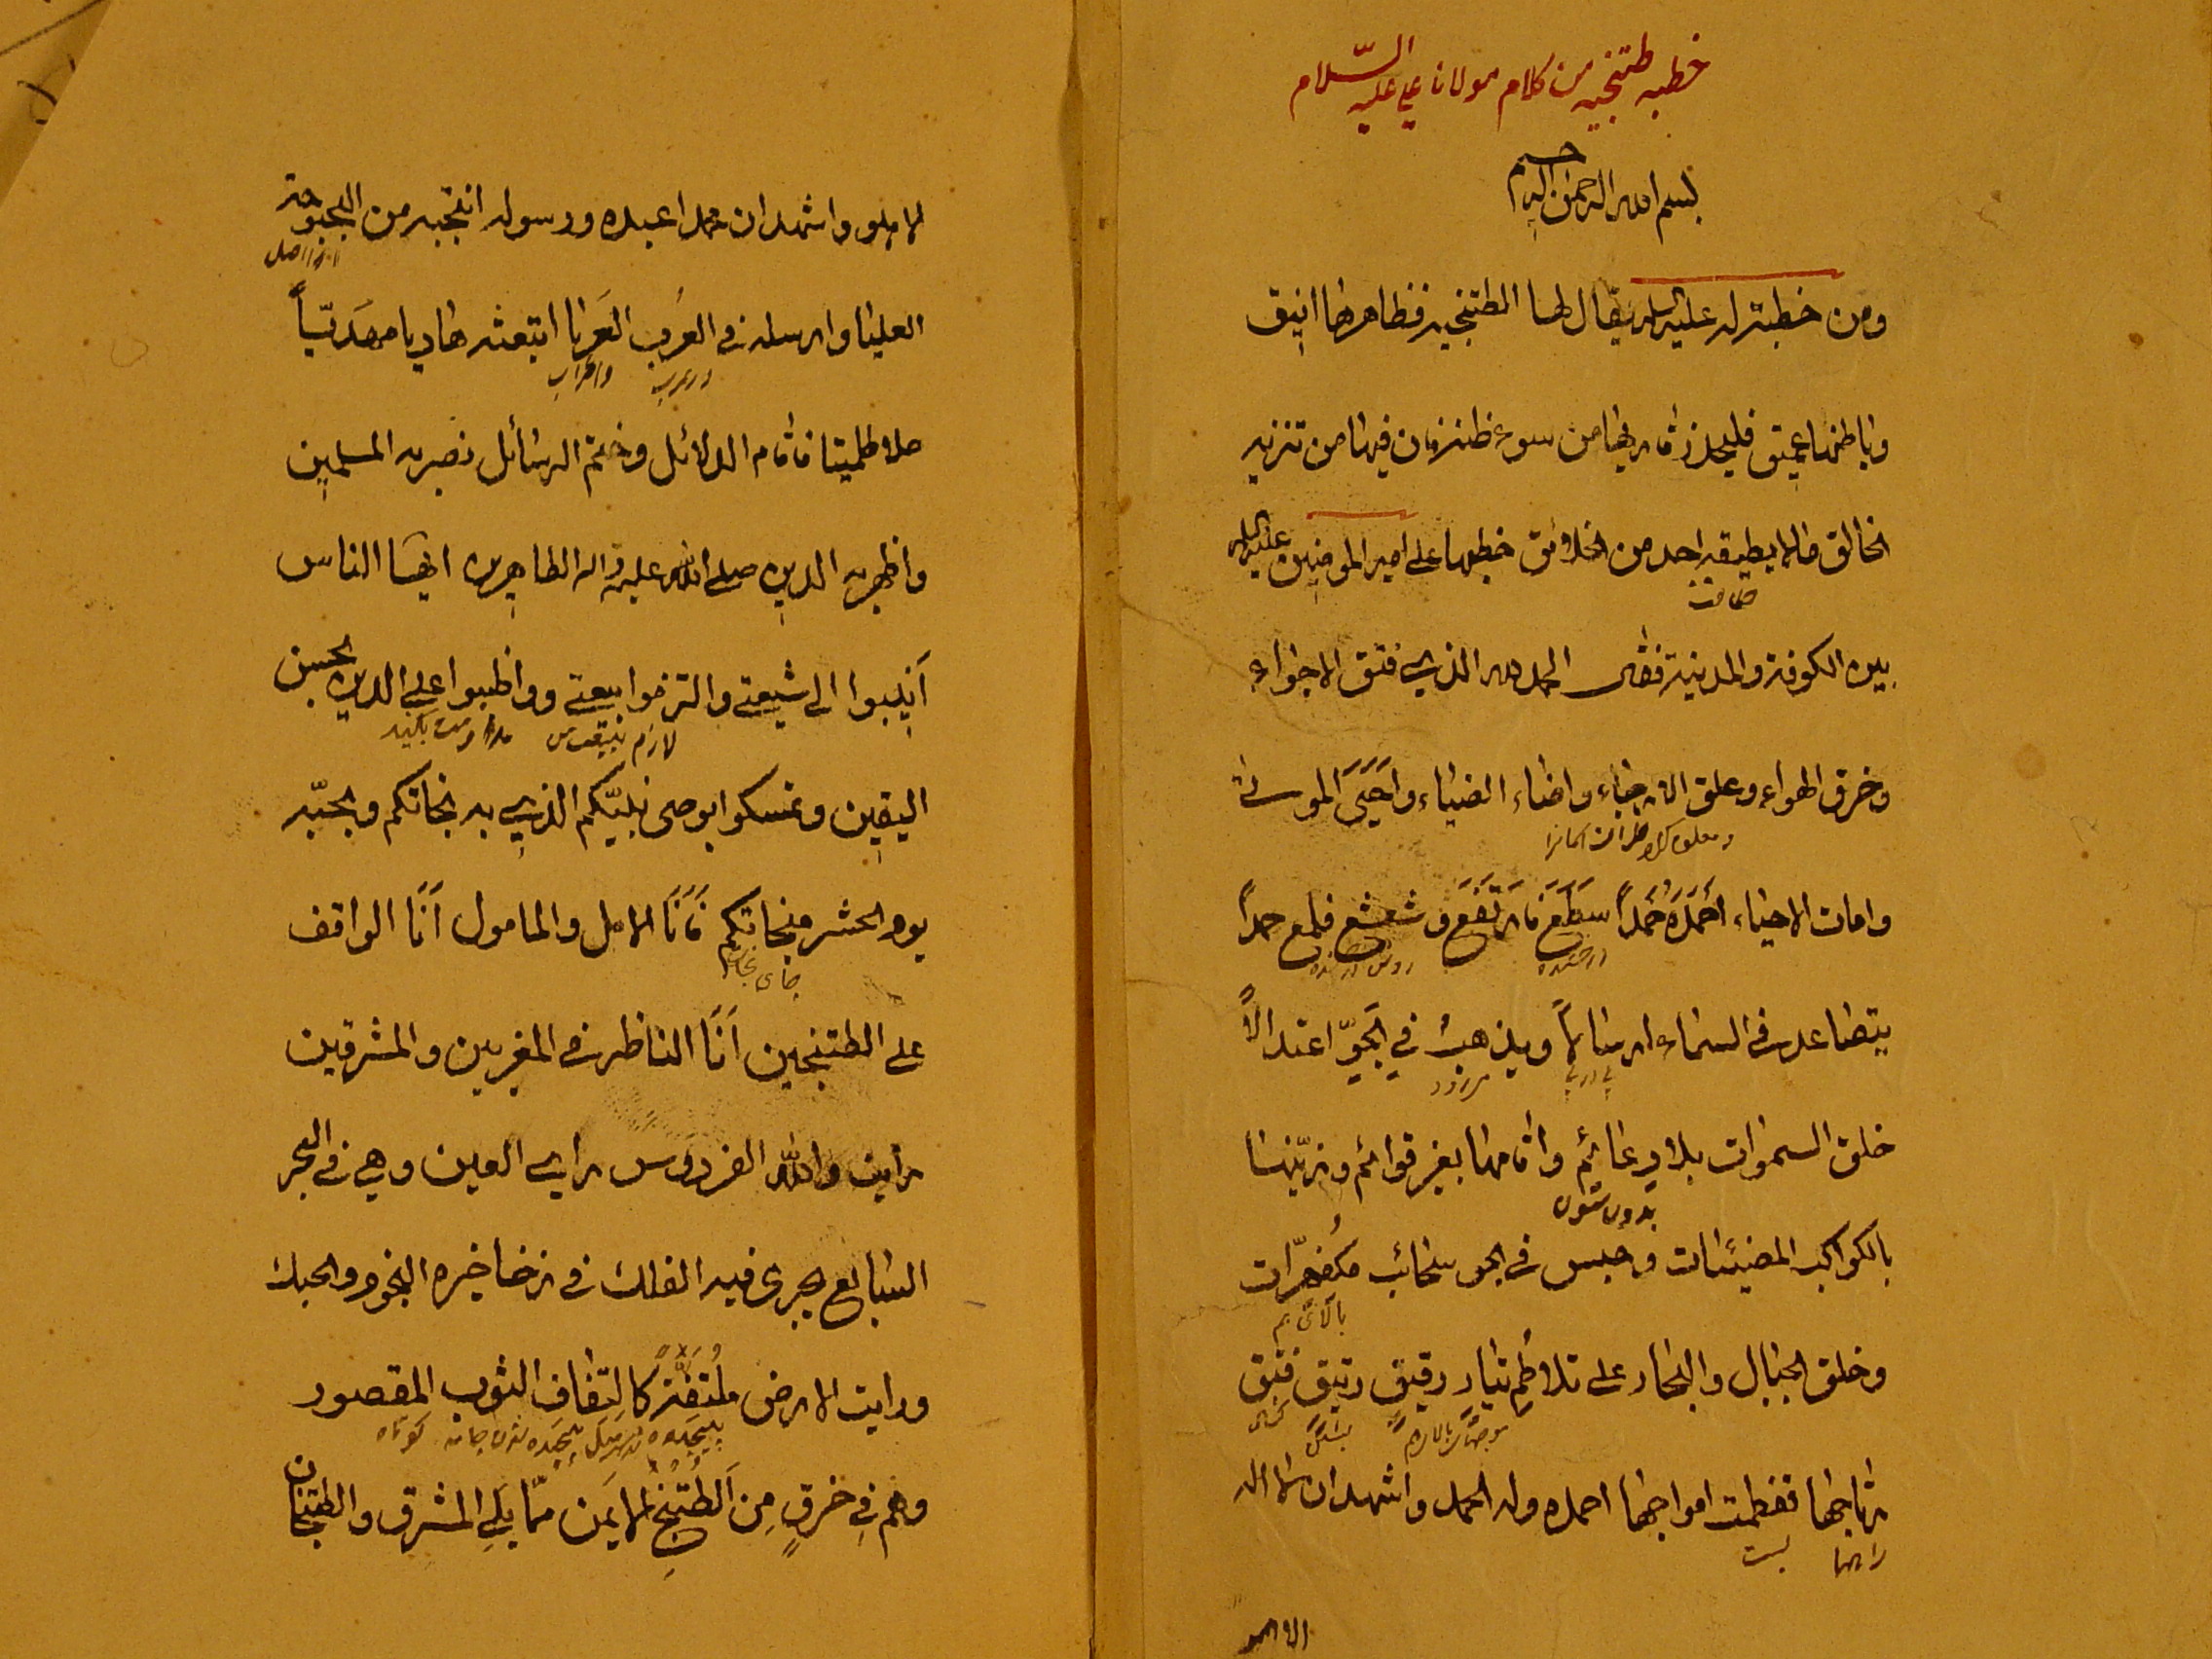 خطبه طتنجيه من كلام مولانا علي عليه السّلام
بسم الله الرحمن الرحيم
ومن خطبة له عليه السلام يقال لها الطتنجيه فظاهرها انيق
وباطنها عميق فليحذر قاريها من سوء ظنه فان فيها من تنزيه
الخالق مالا يطيقه احد من الخلائق خطبها علي امير المومنين عليه السلام
طاقت
بين الكوفة والمدينة فقال الحمد لله الذي فتق الاجواء
وخرق الهواء وعلق الارجاء واضاء الضياء واَحيَىَ الموتى
وامات الاحياء اَحمَدُهُ حَمداً سَطَعَ فَارتَفَعَ و شعشع فلمع حمداً
درخشنده
يتصاعد في السماء ارسالاً ويذهبُ في الجَوِّ اعتدالاً
پی در پی
میرود
خلق السموات بلا دعائم واقامها بغير قوائم وزيّنها
بدون ستون
بالكواكب المضيئات وحبس في الجو سحائب مكفهرّات
بالای هم
وخلق الجبال والبحار على تلاطُم تيار رقيق رتيق فتق
رتاجها فغطمت امواجها احمده وله الحمد واشهد ان لا اله
راهها
الا هو
لا هو واشهد ان محمدا عبده ورسوله انتجبه من البحبوحة
از اصل
العليا وارسله في العُرب العَربا ابتعثه هاديا مهديّاً
در عرب
واعراب
حلا طلميتا فاقام الدلائل وختم الرسائل نصر به المسلمين
واظهر به الدين صلى الله عليه واله الطاهرين ايها الناس
اَنيبوا الى شيعتي والتزموا بيعتي وواظبوا على الدين بحسن
لازم بيعت من
مداومت بکنید
اليقين وتمسكوا بوصي نبيّكم الذي به نجاتكم وبحبّه
يوم الحشر منجاتكم فَاَنَا الامل والمامول اَنَا الواقف
جای نجات
على الطتنجين اَنَا الناظر في المغربين والمشرقين
رايت والله الفردوس راي العين وهي في البحر
السابع يجري فيه الفلك في زخاخيره النجوم والحبك
ورايت الارض مُلتَفَّةً كالتفاف الثوب المقصور
کوتاه
وهم في خرقٍ مِن اَلطُتنجِ الايمَن ممّا يَلِي المشرق والطتنجان